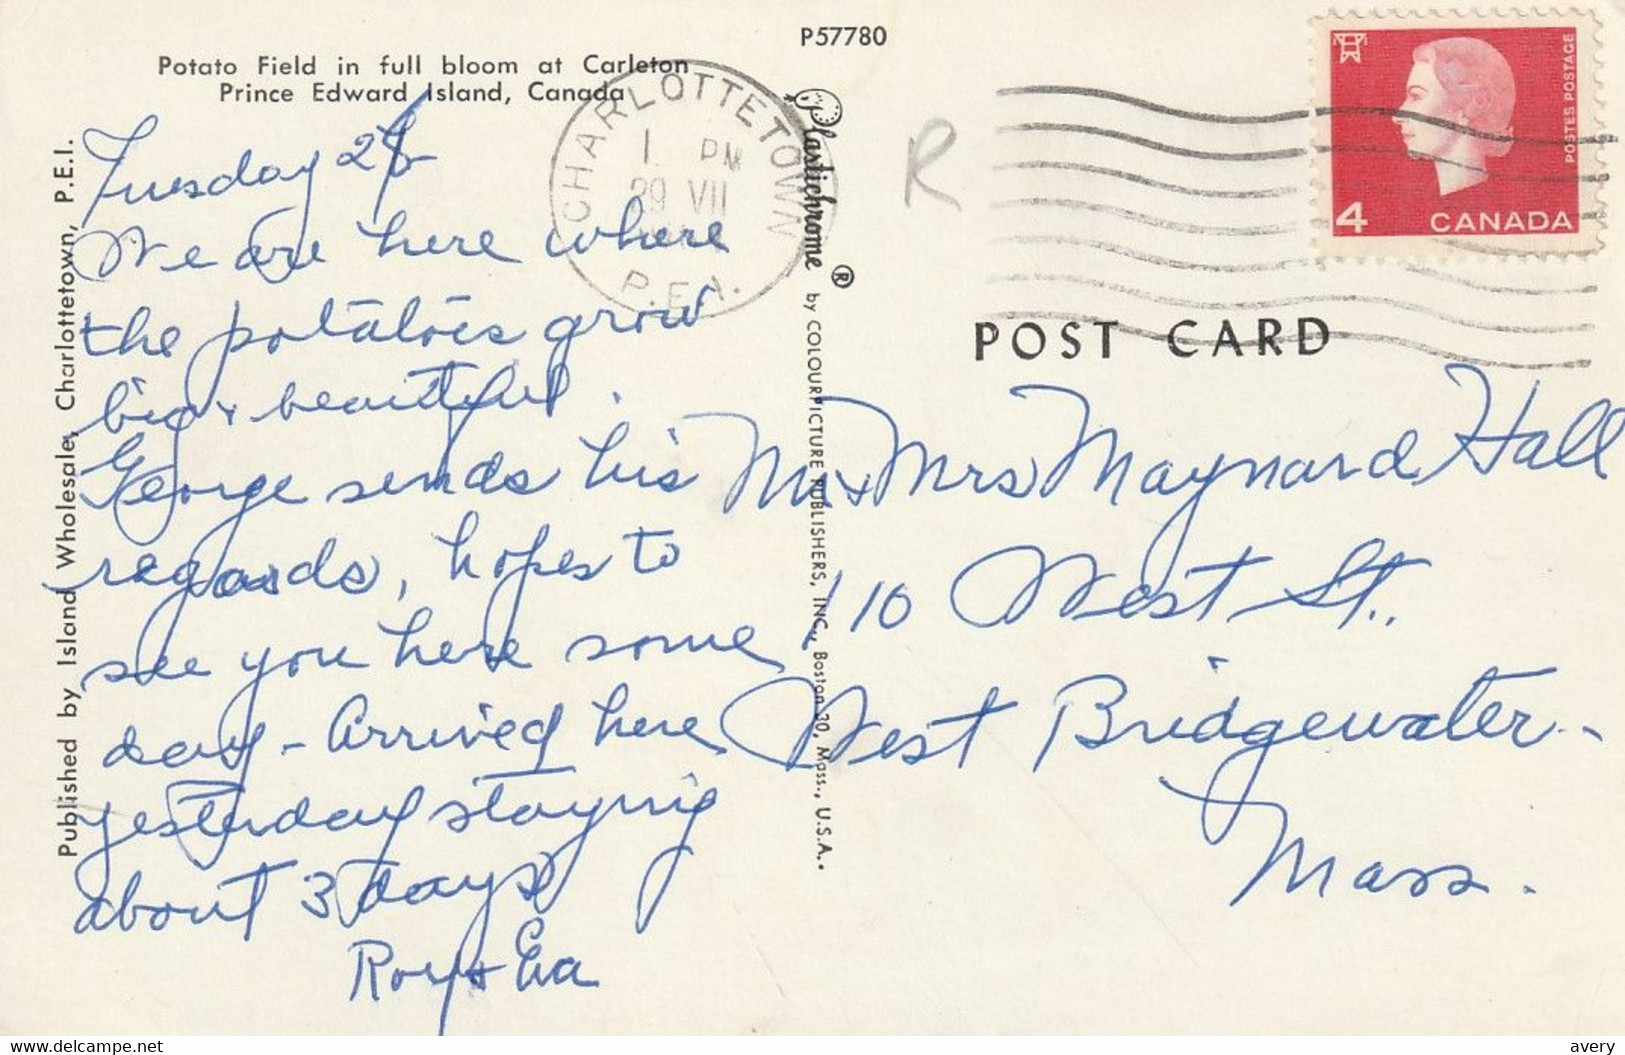 P57780
Potato Field in full bloom at Carleton
Prince Edward Island, Canada
CHARLOTTETOWN
1 PM
29 VII
P.E.I.
R
POSTES POSTAGE
4 CANADA
POST CARD
Published by Island Wholesale, Charlottetown, P.E.I.
Plastichrome ® by COLOURPICTURE PUBLISHERS, INC., Boston 30, Mass., U.S.A.
Tuesday 28
We are here where
the potatoes grow
big & beautiful.
George sends his
regards, hopes to
see you here some
day - Arrived here
yesterday staying
about 3 days
Roy & Eva
Mr & Mrs Maynard Hall
110 West St.,
West Bridgewater -
Mass.
HipPostcard.com
avery